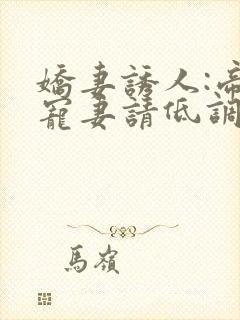 嬌妻誘人:帝
寵妻請低調
馬嶺